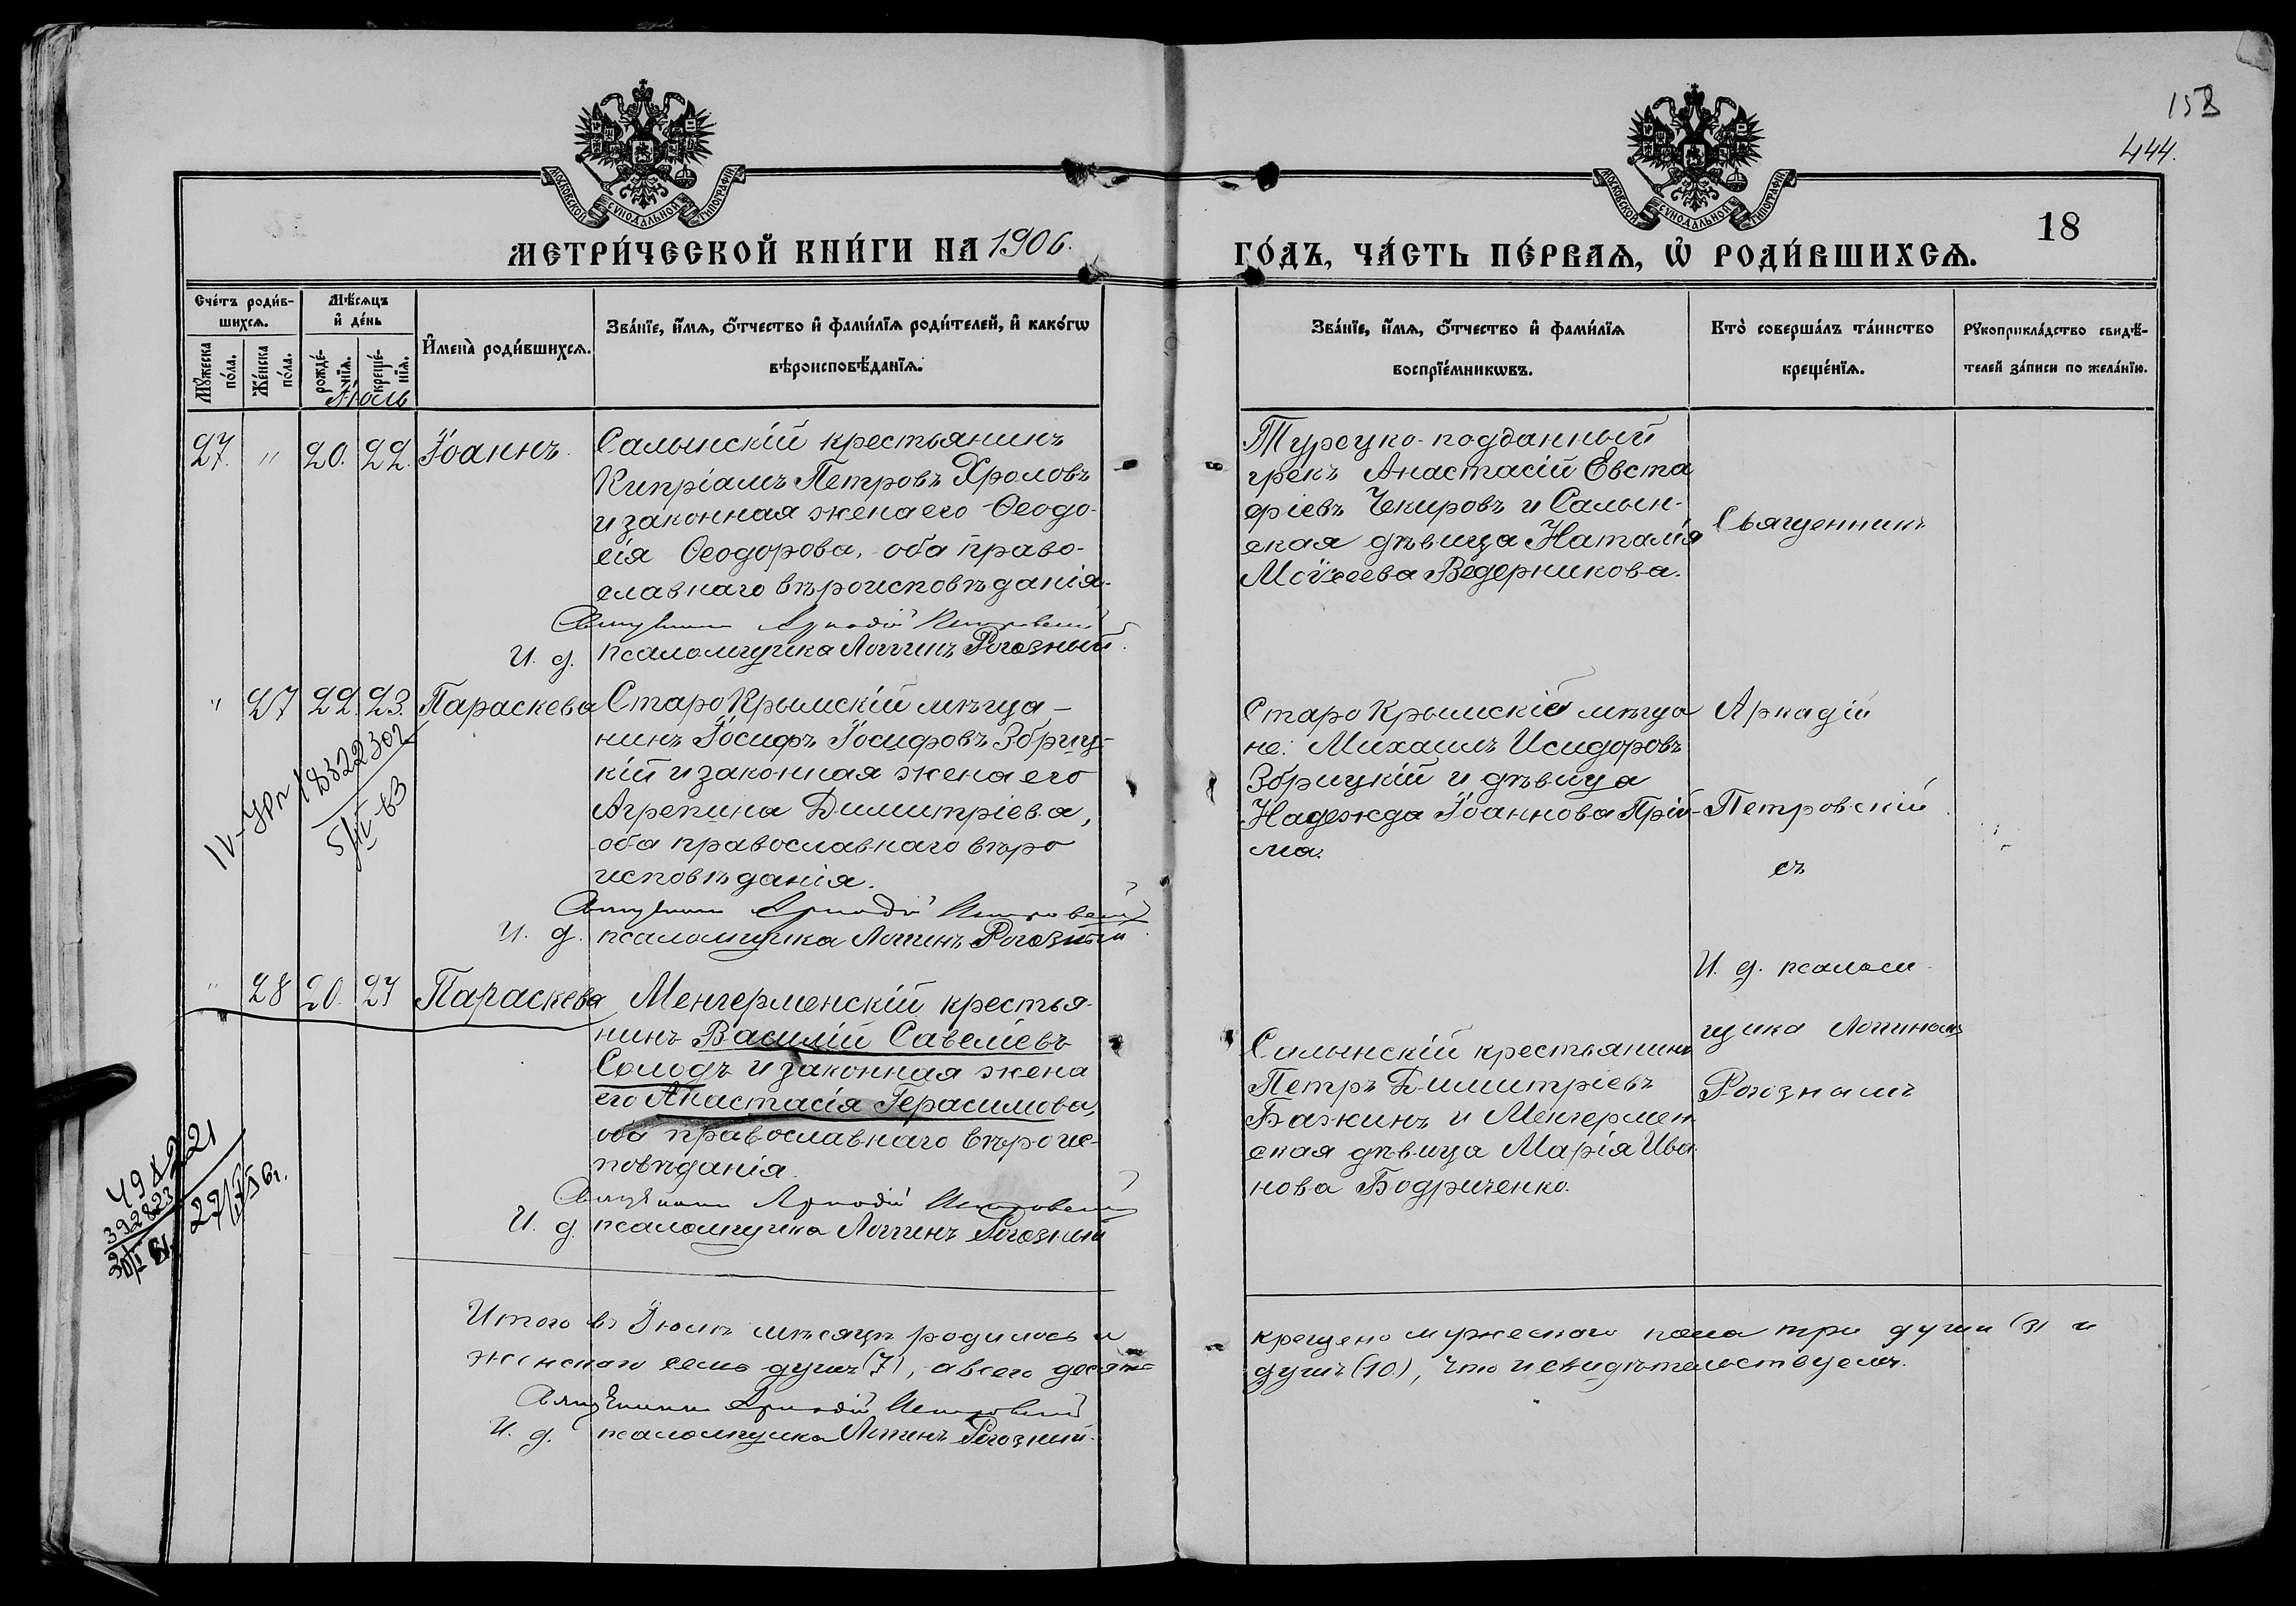 158
444.
МОСКОВСКОЙ СѴНОДАЛЬНОЙ ТИПОГРАФІИ
МОСКОВСКОЙ СѴНОДАЛЬНОЙ ТИПОГРАФІИ
18
МЕТРИ́ЧЕСКОЙ КНИ́ГИ НА 1906.
ГО́ДЪ, ЧА́СТЬ ПЕ́РВАѦ, Ѡ҆ РОДИ́ВШИХСѦ.
Сче́тъ роди́в-
шихсѧ.
Мꙋ́жеска по́ла.
Же́нска по́ла.
Мѣ́сѧцъ
и҆ де́нь
рожде́-нїѧ.
креще́-нїѧ.
И҆мена̀ роди́вшихсѧ.
Зва́нїе, и҆́мѧ, ѻ҆́тчество и҆ фами́лїѧ роди́телей, и҆ како́гѡ
вѣроисповѣ́данїѧ.
Зва́нїе, и҆́мѧ, ѻ҆́тчество и҆ фами́лїѧ
воспрїе́мникѡвъ.
Кто̀ соверша́лъ та́инство
креще́нїѧ.
Рꙋкоприкла́дство свидѣ́-
телей за́писи по жела́нїю.
Іюль
27. " 20. 22. Іоаннъ.
Салынскій крестьянинъ
Кипріанъ Петровъ Хроловъ
и законная жена его Ѳеодо-
сія Ѳеодорова, оба право-
славнаго вѣроисповѣданія.
Священникъ Аркадій Петровскій
И. д. псаломщика Логгинъ Рогозный.
Турецко-подданный
грекъ Анастасій Евста
фіевъ Чекировъ и Салын-
ская дѣвица Наталія
Моѵсеева Ведерникова.
Священникъ
" 27 22. 23. Параскева
Старо Крымскій мѣща-
нинъ Іосифъ Іосифовъ Збриц-
кій и законная жена его
Агрепина Димитріева,
оба православнаго вѣро
исповѣданія.
Священникъ Аркадій Петровскій
И. д. псаломщика Логгинъ Рогозный
Старо Крымскіе мѣща
не: Михаилъ Исидоровъ
Збрицкій и дѣвица
Надежда Іоаннова Прій-
ма.
Аркадій
Петровскій
съ
И. д. псалом-
щика Логгиномъ
Рогознымъ
" 28 20. 27 Параскева
Менгерменскій крестья-
нинъ Василій Савеліевъ
Солодъ и законная жена
его Анастасія Герасимова,
оба православнаго вѣроис-
повѣданія.
Священникъ Аркадій Петровскій
И. д. псаломщика Логгинъ Рогозный
Салынскій крестьянинъ
Петръ Димитріевъ
Бажинъ и Менгермен
ская дѣвица Марія Ива-
нова Бодриченко.
Итого въ Іюлѣ мѣсяцѣ родилось и
крещено мужескаго пола три души (3) и
женскаго семь душъ (7), а всего десять
душъ (10), что и свидѣтельствуемъ.
Священникъ Аркадій Петровскій
И. д. псаломщика Логгинъ Рогозный.